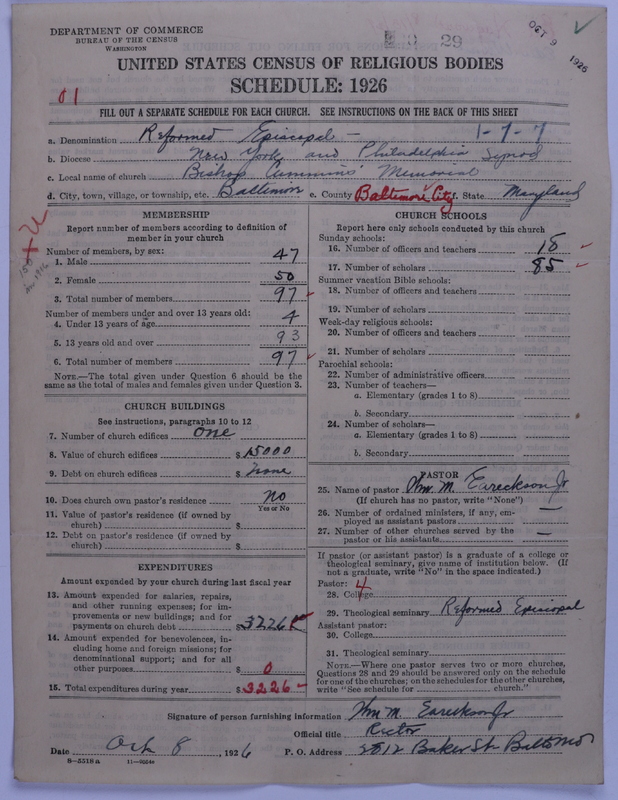 DEPARTMENT OF COMMERCE
BUREAU OF THE CENSUS
WASHINGTON
29
OCT 9 1926
UNITED STATES CENSUS OF RELIGIOUS BODIES
SCHEDULE: 1926
01
FILL OUT A SEPARATE SCHEDULE FOR EACH CHURCH. SEE INSTRUCTIONS ON THE BACK OF THIS SHEET
a. Denomination Reformed Episcopal — 1-7-7
b. Diocese New York and Philadelphia Synod
c. Local name of church Bishop Cummins' Memorial
d. City, town, village, or township, etc. Baltimore e. County Baltimore City f. State Maryland
MEMBERSHIP
Report number of members according to definition of
member in your church
Number of members, by sex:
1. Male 47
2. Female 50
3. Total number of members 97
Number of members under and over 13 years old:
4. Under 13 years of age 4
5. 13 years old and over 93
6. Total number of members 97
NOTE.—The total given under Question 6 should be the
same as the total of males and females given under Question 3.
CHURCH BUILDINGS
See instructions, paragraphs 10 to 12
7. Number of church edifices one
8. Value of church edifices $ 15000
9. Debt on church edifices $ none
10. Does church own pastor's residence no
Yes or No
11. Value of pastor's residence (if owned by
church) $
12. Debt on pastor's residence (if owned by
church) $
EXPENDITURES
Amount expended by your church during last fiscal year
13. Amount expended for salaries, repairs,
and other running expenses; for im-
provements or new buildings; and for
payments on church debt $ 3226
14. Amount expended for benevolences, in-
cluding home and foreign missions; for
denominational support; and for all
other purposes $ 0
15. Total expenditures during year $ 3226 —
CHURCH SCHOOLS
Report here only schools conducted by this church
Sunday schools:
16. Number of officers and teachers 18
17. Number of scholars 85
Summer vacation Bible schools:
18. Number of officers and teachers
19. Number of scholars
Week-day religious schools:
20. Number of officers and teachers
21. Number of scholars
Parochial schools:
22. Number of administrative officers
23. Number of teachers—
a. Elementary (grades 1 to 8)
b. Secondary
24. Number of scholars—
a. Elementary (grades 1 to 8)
b. Secondary
PASTOR
25. Name of pastor Wm. M. Eareckson Jr
(If church has no pastor, write "None")
26. Number of ordained ministers, if any, em-
ployed as assistant pastors —
27. Number of other churches served by the
pastor or his assistants —
If pastor (or assistant pastor) is a graduate of a college or
theological seminary, give name of institution below. (If
not a graduate, write "No" in the space indicated.)
Pastor: 4
28. College
29. Theological seminary Reformed Episcopal
Assistant pastor:
30. College
31. Theological seminary
NOTE.—Where one pastor serves two or more churches,
Questions 28 and 29 should be answered only on the schedule
for one of the churches; on the schedules for the other churches,
write "See schedule for church."
Signature of person furnishing information Wm M. Eareckson Jr
Official title Rector
Date Oct 8, 1926 P. O. Address 2812 Baker St. Baltimore
8—5518 a 11—9024